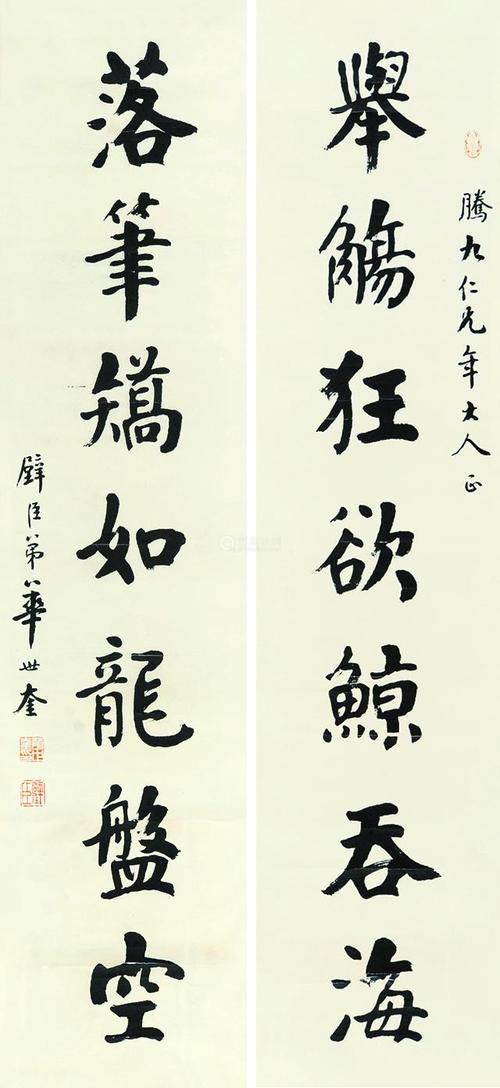 騰九仁兄年大人正
舉觴狂欲鯨吞海
落筆矯如龍盤空
璧臣弟華世奎